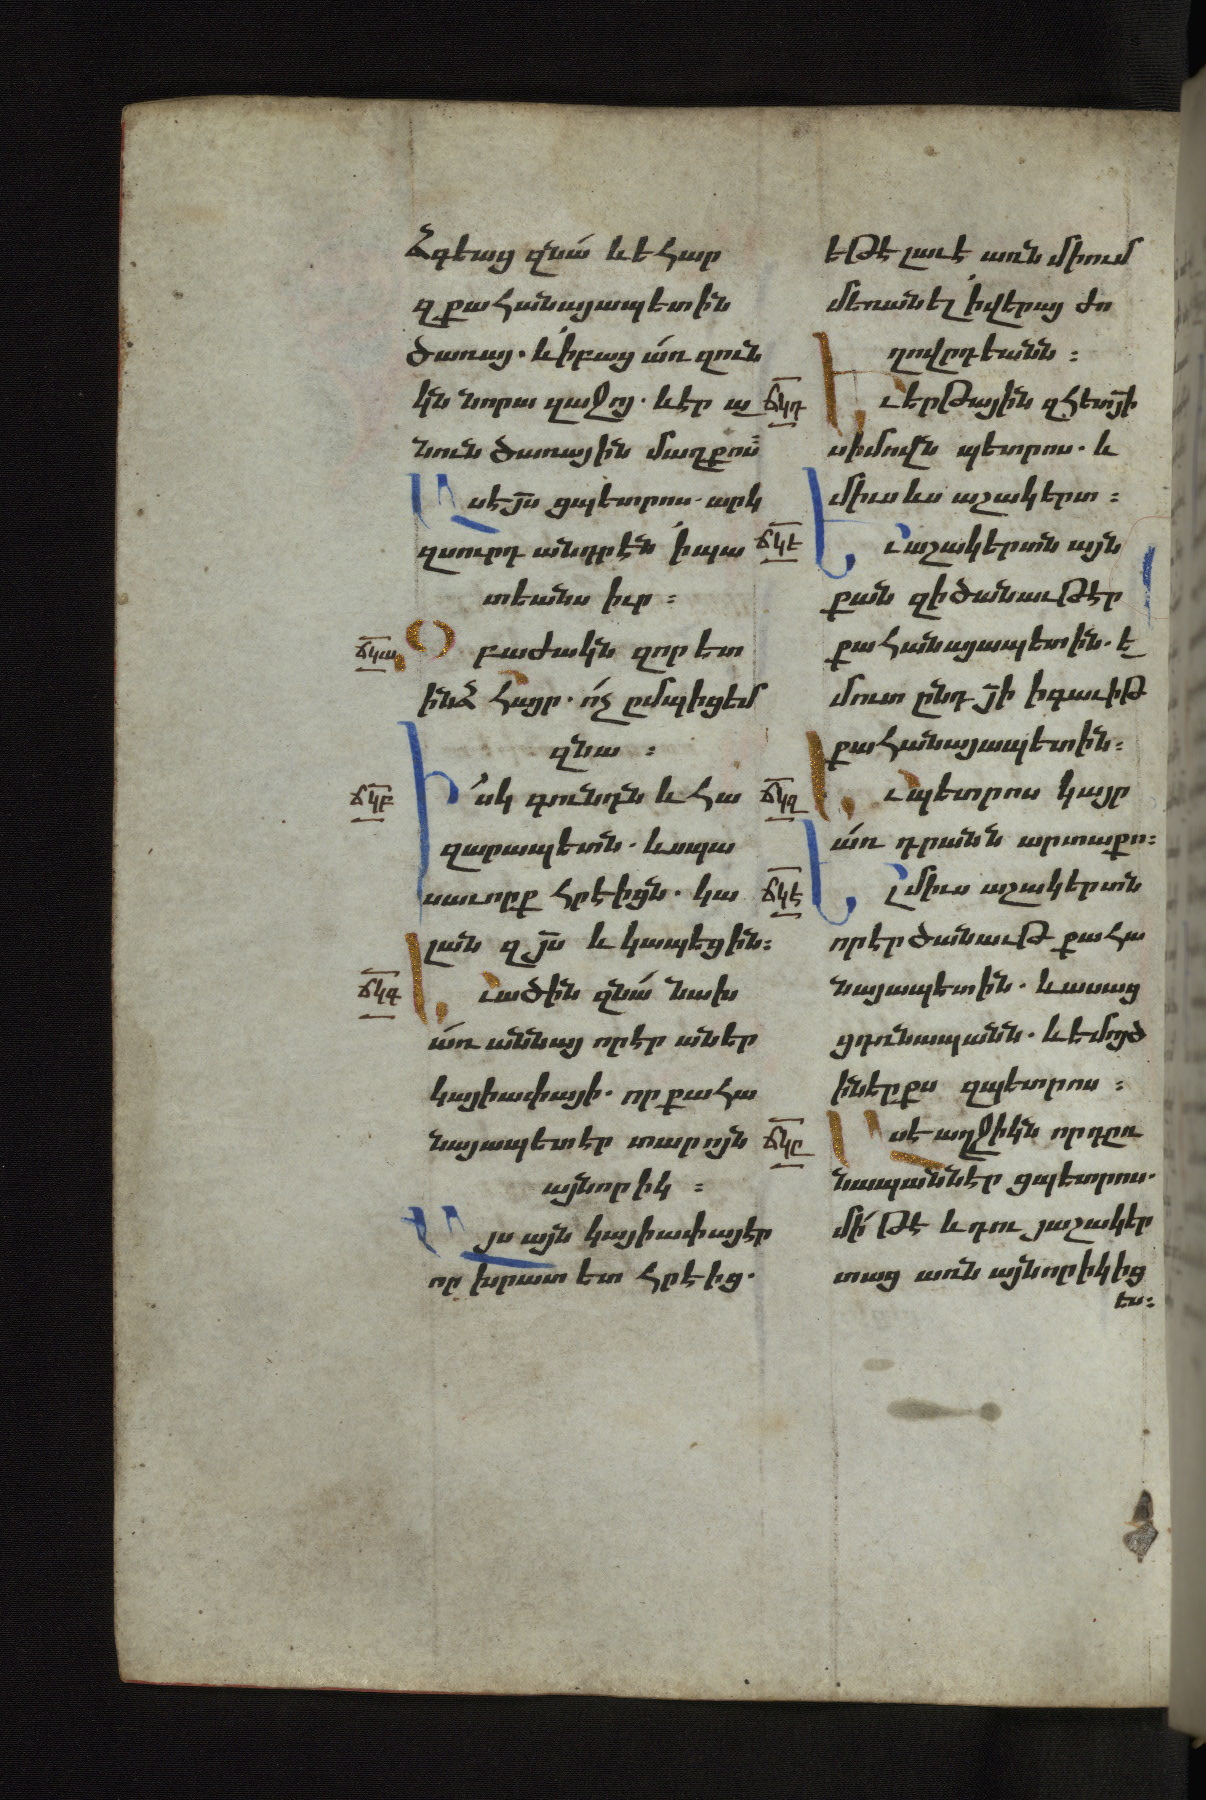 Ձգեաց զնա՛ և եհար
զքահանայապետին
ծառայ. և ի՛բաց ա՛ռ զուն
կն նորա զաջոյ. և էր ա
նուն ծառային մաղքոս։
Ասէ յս̅ ցպետրոս. արկ
զսուրդ անդրէն ի՛պա
տեանս իւր ։
ճկա
Զբաժակն զոր ետ
ինձ հայր. ո՛չ ըմպիցեմ
զնա ։
ճկբ
Իսկ գունդն և հա
զարապետն. և սպա
սաւորք հրէիցն. կա
լան զյս̅ և կապեցին։
ճկգ
Եւ ածին զնա՛ նախ
ա՛ռ աննայ որ էր աներ
կայիափայի. որ քահա
նայապետ էր տարոյն
այնորիկ ։
Այս այն կայիափայ էր
որ խրատ ետ հրէից.
եթէ լաւ է առն միում
մեռանել ի՛վերայ ժո
ղովրդեանն ։
ճկդ
Եւ երթային զհետ յի̅
սիմովն պետրոս. և
միւս ևս աշակերտ ։
ճկե
Եւ աշակերտն այն
քան զի ծանաւթ էր
քահանայապետին. է
մուտ ընդ յի̅ ի գաւիթ
քահանայապետին։
ճկզ
Եւ պետրոս կայր
ա՛ռ դրանն արտաքո։
ճկէ
Ել միւս աշակերտն
որ էր ծանաւթ քահա
նայապետին. և ասաց
ցդռնապանն. և եմոյծ
ի ներքս զպետրոս ։
ճկը
Ասէ աղջիկն որ դըռ
նապանն էր ցպետրոս.
մի՛ թէ և դու յաշակեր
տաց առն այնորիկ ից
ես։